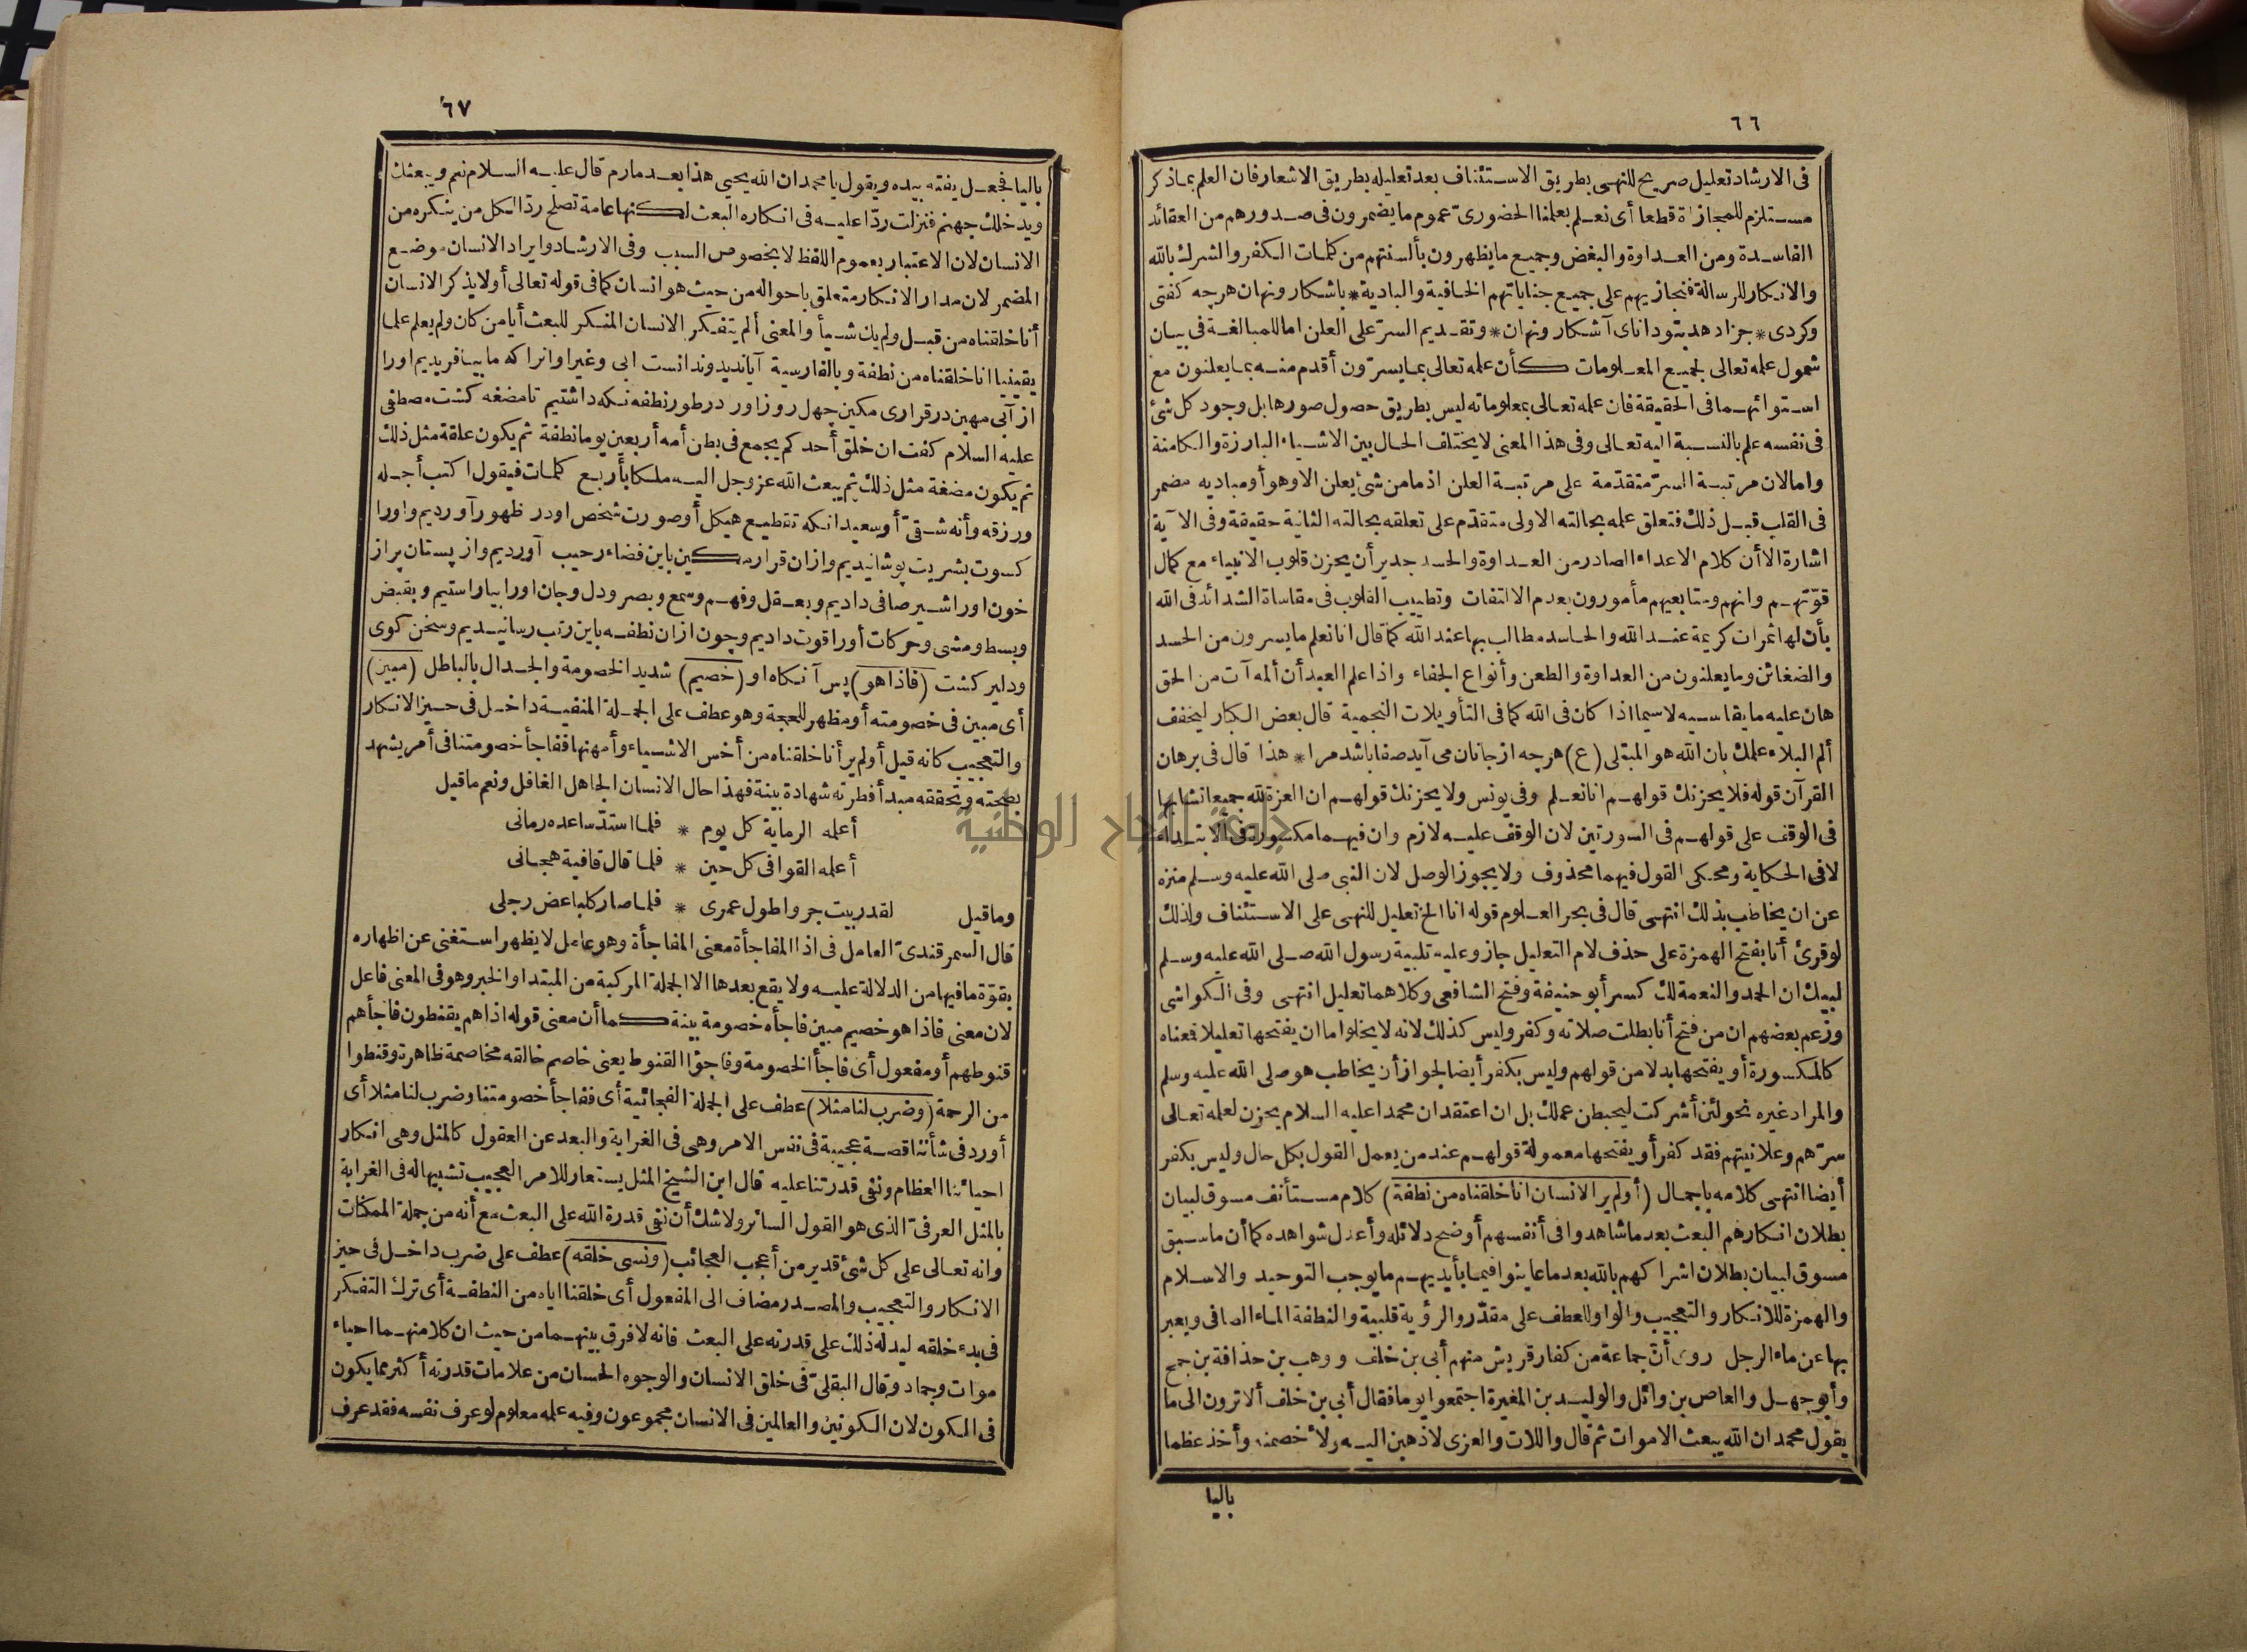 ٦٦
فى الارشاد تعليل صريح للنهى بطريق الاستئناف بعد تعليله بطريق الاشعار فان العلم بما ذكر
مستلزم للمجازاة قطعا أى نعلم بعلمنا الحضورىّ عموم ما يضمرون فى صدورهم من العقائد
الفاسدة ومن العداوة والبغض وجميع ما يظهرون بألسنتهم من كلمات الكفر والشرك بالله
والانكار للرسالة فنجازيهم على جميع جناياتهم الخافية والبادية * باشكار ونهان هرچه كفتى
وكردى * جزا دهد بتو داناى آشكار ونهان * وتقديم السرّ على العلن اما للمبالغة فى بيان
شمول علمه تعالى لجميع المعلومات كأن علمه تعالى بما يسرّون أقدم منه بما يعلنون مع
استوائهما فى الحقيقة فان علمه تعالى بمعلوماته ليس بطريق حصول صورها بل وجود كل شئ
فى نفسه علم بالنسبة اليه تعالى وفى هذا المعنى لا يختلف الحال بين الاشياء البارزة والكامنة
واما لان مرتبة السرّ متقدّمة على مرتبة العلن اذ ما من شئ يعلن الا وهو أو مباديه مضمر
فى القلب قبل ذلك فتعلق علمه بحالته الاولى متقدّم على تعلقه بحالته الثانية حقيقة وفى الآية
اشارة الا أن كلام الاعداء الصادر من العداوة والحسد جدير أن يحزن قلوب الانبياء مع كمال
قوّتهم وانهم ومتابعيهم مأمورون بعدم الالتفات وتطييب القلوب فى مقاساة الشدائد فى الله
بأن لها ثمرات كريمة عند الله والحاسد مطالب بها عند الله كما قال انا نعلم ما يسرون من الحسد
والضغائن وما يعلنون من العداوة والطعن وأنواع الجفاء واذا علم العبد أن ألمه آت من الحق
هان عليه ما يقاسيه لاسيما اذا كان فى الله كما فى التأويلات النجمية قال بعض الكبار ليخفف
ألم البلاء علمك بان الله هو المبتلى (ع) هرچه از جانان مى آيد صفا باشد مرا * هذا قال فى برهان
القرآن قوله فلا يحزنك قولهم انا نعلم وفى يونس ولا يحزنك قولهم ان العزة لله جميعا تشابها
فى الوقف على قولهم فى السورتين لان الوقف عليه لازم وان فيهما مكسورة فى الابتداء
لا فى الحكاية ومحكى القول فيهما محذوف ولا يجوز الوصل لان النبى صلى الله عليه وسلم منزه
عن ان يخاطب بذلك انتهى قال فى بحر العلوم قوله انا الخ تعليل للنهى على الاستئناف ولذلك
لو قرئ أنا بفتح الهمزة على حذف لام التعليل جاز وعليه تلبية رسول الله صلى الله عليه وسلم
لبيك ان الحمد والنعمة لك كسر أبو حنيفة وفتح الشافعى وكلاهما تعليل انتهى وفى الكواشى
وزعم بعضهم ان من فتح أنا بطلت صلاته وكفر وليس كذلك لانه لا يخلو اما ان يفتحها تعليلا فمعناه
كالمكسورة أو يفتحها بدلا من قولهم وليس بكفر أيضا لجواز أن يخاطب هو صلى الله عليه وسلم
والمراد غيره نحو لئن أشركت ليحبطن عملك بل ان اعتقد ان محمدا عليه السلام يحزن لعلمه تعالى
سرّهم وعلانيتهم فقد كفر أو يفتحها معمولة قولهم عند من يعمل القول بكل حال وليس بكفر
أيضا انتهى كلامه باجمال (أولم ير الانسان انا خلقناه من نطفة) كلام مستأنف مسوق لبيان
بطلان انكارهم البعث بعد ما شاهدوا فى أنفسهم أوضح دلائله وأعدل شواهده كما أن ما سبق
مسوق لبيان بطلان اشراكهم بالله بعد ما عاينوا فيما بأيديهم ما يوجب التوحيد والاسلام
والهمزة للانكار والتعجيب والواو للعطف على مقدّر والرؤية قلبية والنطفة الماء الصافى ويعبر
بها عن ماء الرجل روى أن جماعة من كفار قريش منهم أبى بن خلف ووهب بن حذافة بن جمح
وأبو جهل والعاص بن وائل والوليد بن المغيرة اجتمعوا يوما فقال أبى بن خلف ألا ترون الى ما
يقول محمد ان الله يبعث الاموات ثم قال واللات والعزى لاذهبن اليه ولأخصمنه وأخذ عظما
باليا
٦٧
باليا فجعل يفته بيده ويقول يا محمد ان الله يحيى هذا بعد ما رم قال عليه السلام نعم ويبعثك
ويدخلك جهنم فنزلت ردّا عليه فى انكاره البعث لكنها عامة تصلح ردّا لكل من ينكره من
الانسان لان الاعتبار بعموم اللفظ لا بخصوص السبب وفى الارشاد وايراد الانسان موضع
المضمر لان مدار الانكار متعلق باحواله من حيث هو انسان كما فى قوله تعالى أولا يذكر الانسان
أنا خلقناه من قبل ولم يك شيأ والمعنى ألم يتفكر الانسان المنكر للبعث أيا من كان ولم يعلم علما
يقينيا انا خلقناه من نطفة وبالفارسية آيا نديد وندانست ابى وغير او انرا كه ما بيافريديم اورا
از آبى مهين در قرارى مكين چهل روز اور در طور نطفه نكه داشتيم تا مضغه كشت مصطفى
عليه السلام كفت ان خلق أحدكم يجمع فى بطن أمه أربعين يوما نطفة ثم يكون علقة مثل ذلك
ثم يكون مضغة مثل ذلك ثم يبعث الله عز وجل اليه ملكا بأربع كلمات فيقول اكتب أجله
ورزقه وأنه شقىّ أو سعيد انكه تقطيع هيكل أو صورت شخص او در ظهور آورديم واورا
كسوت بشريت پوشانيديم وازان قرار مكين باين فضاء رحيب آورديم واز پستان پر از
خون اورا شير صافى داديم وبعقل وفهم وسمع وبصر ودل وجان اورا بياراستيم وبقبض
وبسط ومشى وحركات أورا قوت داديم وچون ازان نطفه باين رتب رسانيديم وسخن كوى
ودلير كشت (فاذا هو) پس آنكاه او (خصيم) شديد الخصومة والجدال بالباطل (مبين)
أى مبين فى خصومته أو مظهر للحجة وهو عطف على الجملة المنفية داخل فى حيز الانكار
والتعجيب كانه قيل أولم ير أنا خلقناه من أخس الاشياء وأمهنها ففاجأ خصومتنا فى أمر يشهد
بصحته وتحققه مبدأ فطرته شهادة بينة فهذا حال الانسان الجاهل الغافل ونعم ما قيل
أعلمه الرماية كل يوم * فلما استدّ ساعده رمانى
أعلمه القوافى كل حين * فلما قال قافية هجانى
وما قيل لقد ربيت جروا طول عمرى * فلما صار كلبا عض رجلى
قال السمرقندىّ العامل فى اذا المفاجأة معنى المفاجأة وهو عامل لا يظهر استغنى عن اظهاره
بقوّة ما فيها من الدلالة عليه ولا يقع بعدها الا الجملة المركبة من المبتدا والخبر وهو فى المعنى فاعل
لان معنى فاذا هو خصيم مبين فاجأه خصومة بينة كما أن معنى قوله اذا هم يقنطون فاجأهم
قنوطهم أو مفعول أى فاجأ الخصومة وفاجؤا القنوط يعنى خاصم خالقه مخاصمة ظاهرة وقنطوا
من الرحمة (وضرب لنا مثلا) عطف على الجملة الفجائية أى ففاجأ خصومتنا وضرب لنا مثلا أى
أورد فى شأننا قصة عجيبة فى نفس الامر وهى فى الغرابة والبعد عن العقول كالمثل وهى انكار
احيائنا العظام ونفى قدرتنا عليه قال ابن الشيخ المثل يستعار للامر العجيب تشبيها له فى الغرابة
بالمثل العرفىّ الذى هو القول السائر ولا شك أن نفى قدرة الله على البعث مع أنه من جملة الممكنات
وانه تعالى على كل شئ قدير من أعجب العجائب (ونسى خلقه) عطف على ضرب داخل فى حيز
الانكار والتعجيب والمصدر مضاف الى المفعول أى خلقنا اياه من النطفة أى ترك التفكر
فى بدء خلقه ليدله ذلك على قدرته على البعث فانه لا فرق بينهما من حيث ان كلا منهما احياء
موات وجماد وقال البقلىّ فى خلق الانسان والوجوه الحسان من علامات قدرته أكثر مما يكون
فى الكون لان الكونين والعالمين فى الانسان مجموعون وفيه علمه معلوم لو عرف نفسه فقد عرف
جامعة النجاح الوطنية